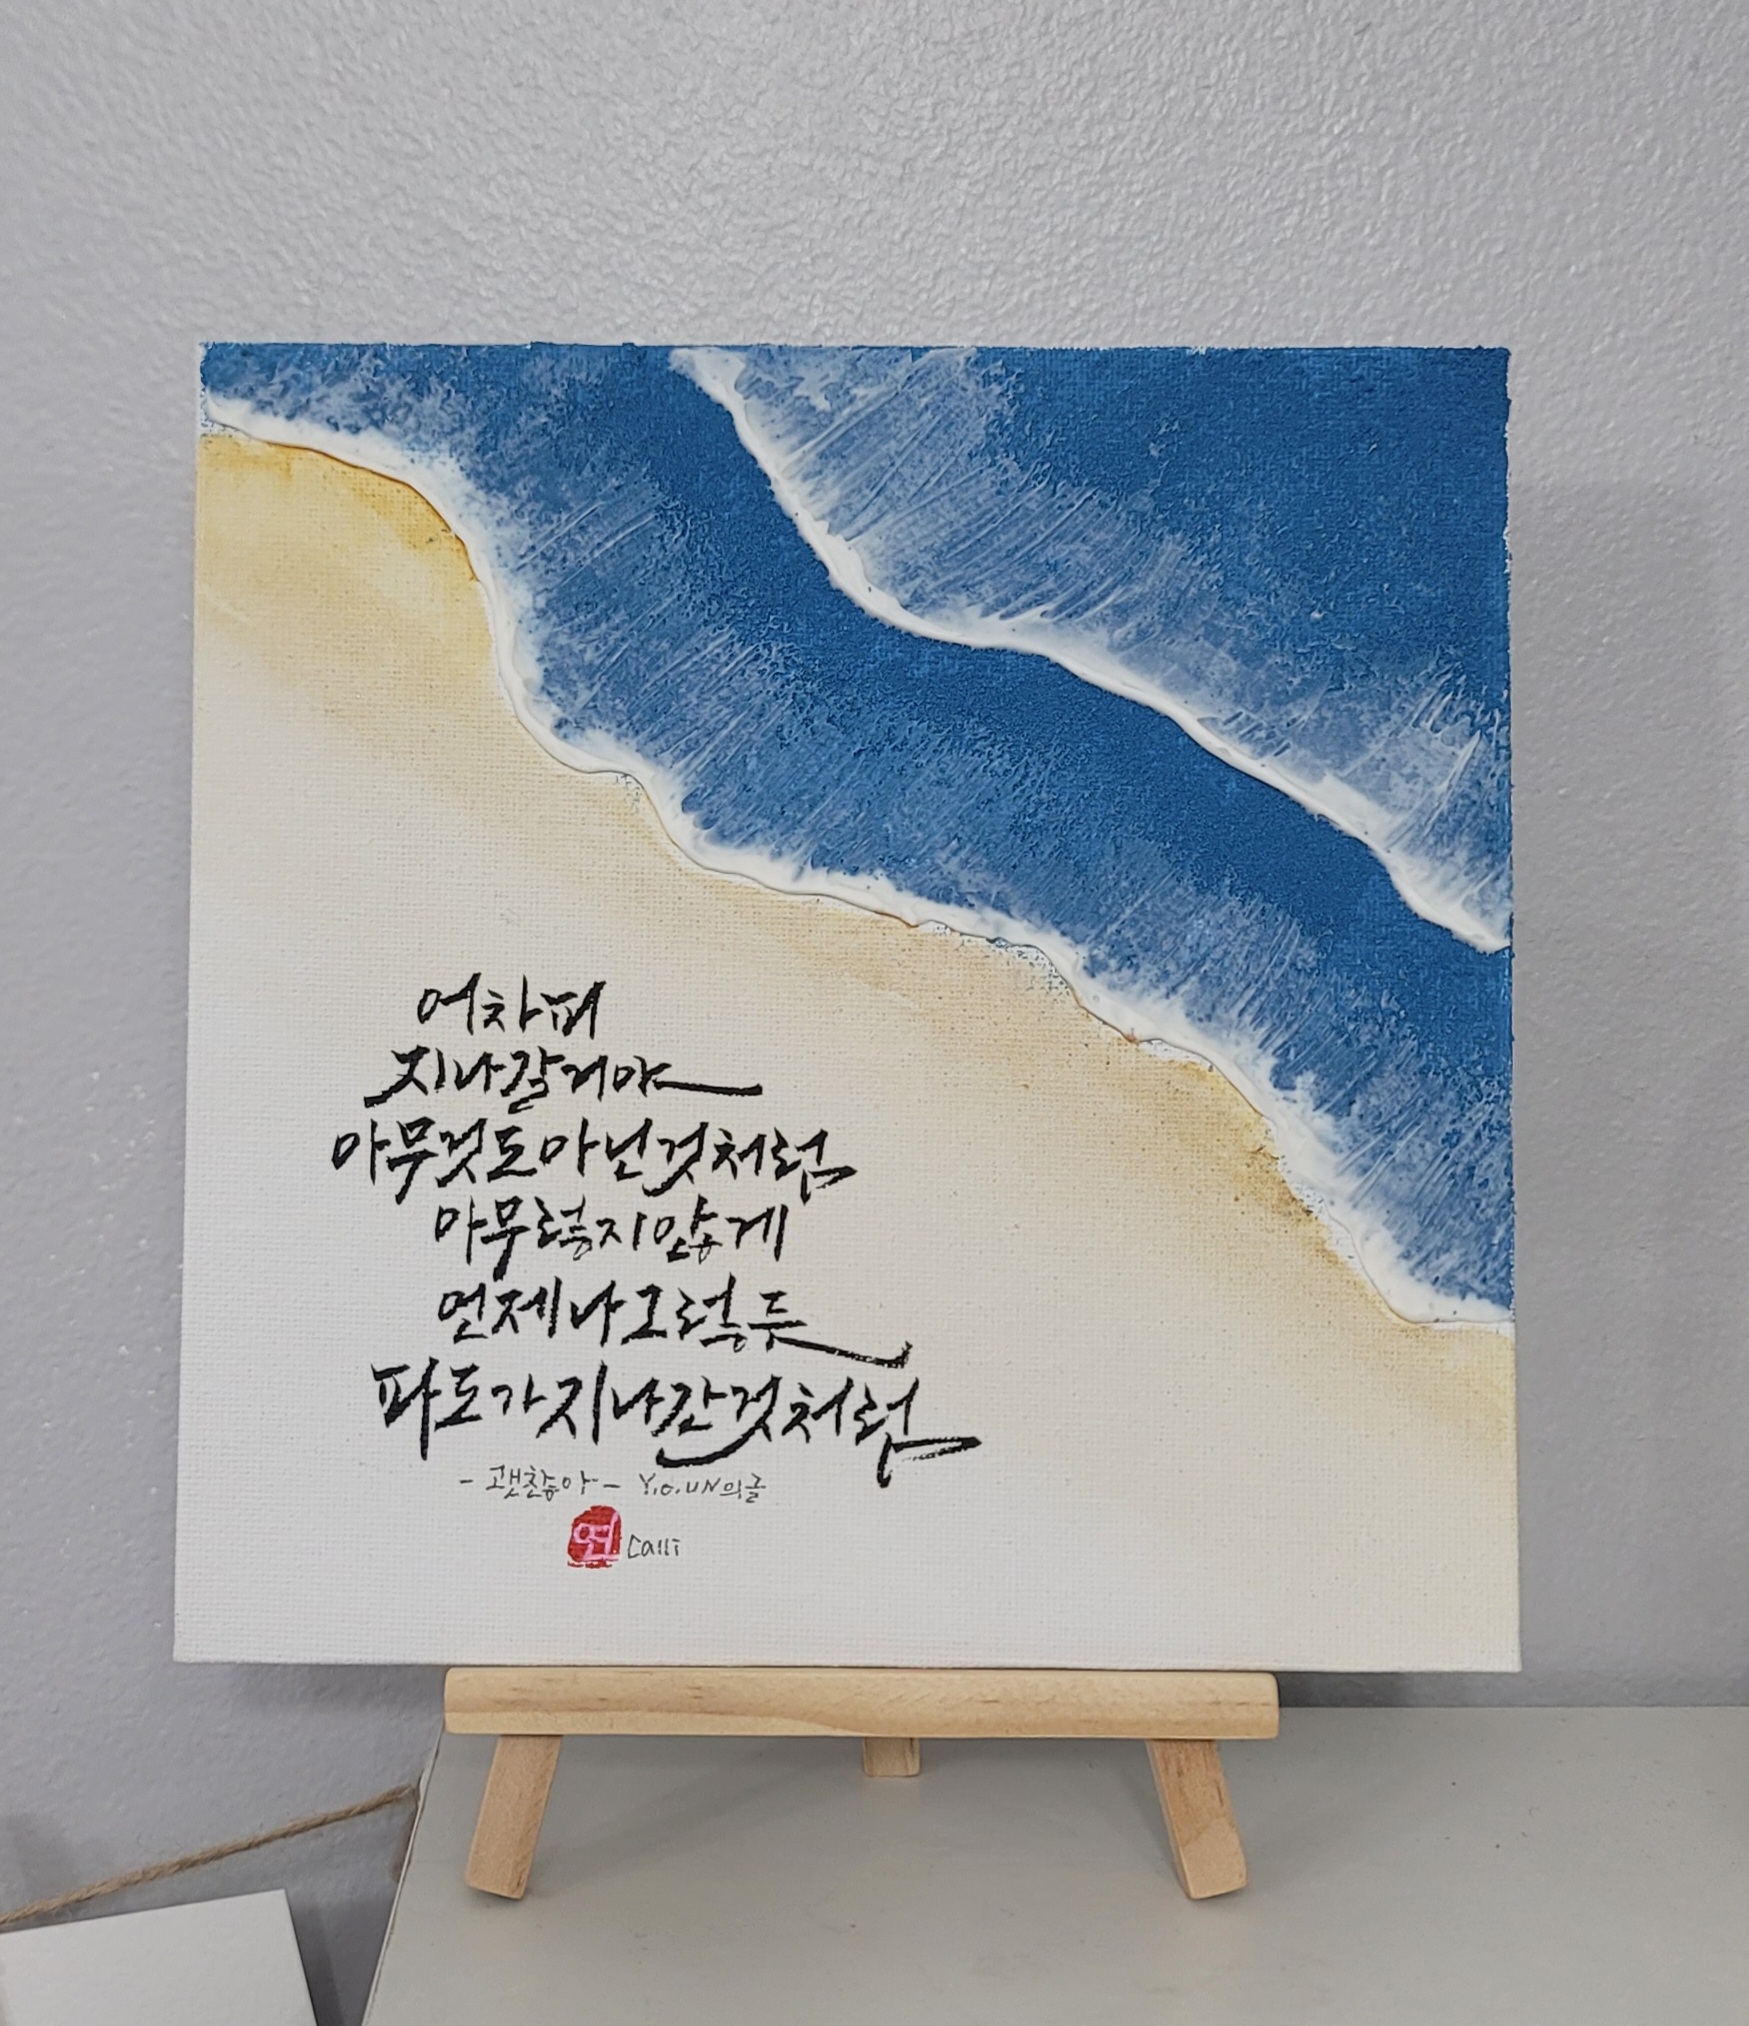 어차피
지나갈거야
아무것도아닌것처럼
아무렇지않게
언제나그렇듯
파도가지나간것처럼
- 괜찮아 - Y.O.UN의글
연 Calli